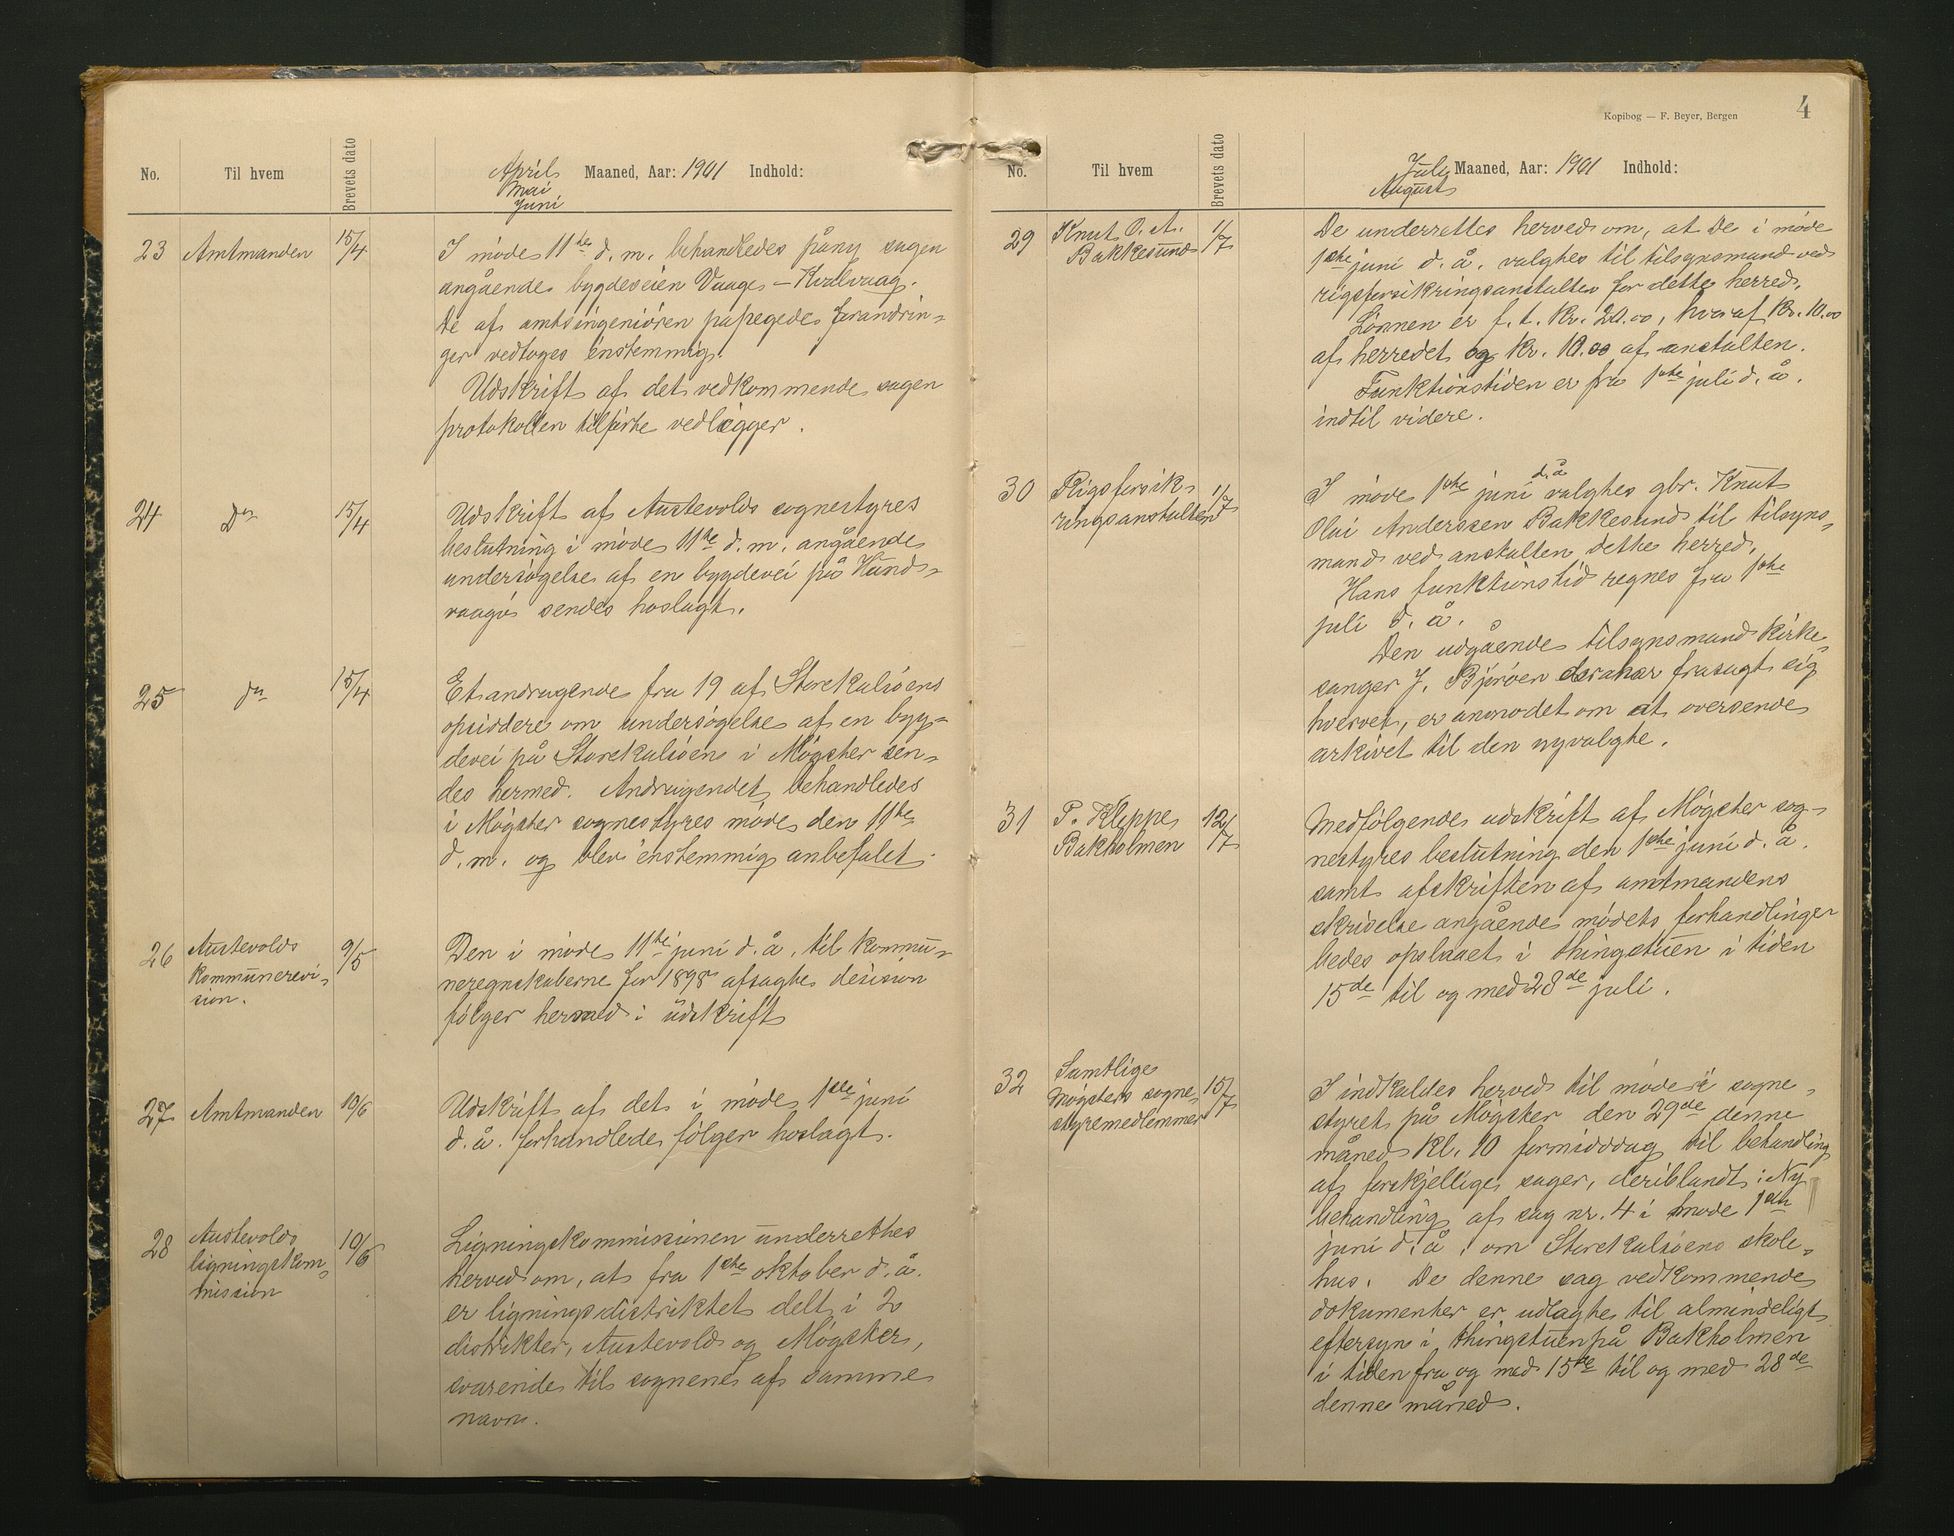 No. Til hvem Brevets dato April Mai Juni Maaned, Aar: 1901 Indhold:
23 Amtmanden 15/4 I møde 11te d. m. behandledes påny sagen
angående bygdeveien Vaage – Kvalvaag.
De af amtsingeniøren påpegede forandrin-
ger vedtoges enstemmig.
Udskrift af det vedkommende sagen
protokollen tilførte vedlægger.
24 Do 15/4 Udskrift af Austevolds sognestyres
beslutning i møde 11te d. m. angående
undersøgelse af en bygdevei på Hunds-
vaagö sendes hoslagt.
25 do 15/4 Et andragende fra 19 af Storekalsöens
opsiddere om undersøgelse af en byg-
devei på Storekalsöen i Møgster sen-
des hermed. Andragendet behandledes
i Møgster sognestyres møde den 11te
d. m. og blev enstemmig anbefalet.
26 Austevolds
kommunerevi-
sion. 9/5 Den i møde 11te juni d. å. til kommu-
neregnskaberne for 1898 afsagte desision
følger herved i udskrift
27 Amtmanden 10/6 Udskrift af det i møde 1ste juni
d. å. forhandlede følger hoslagt.
28 Austevolds
ligningskom-
mission 10/6 Ligningskommissionen underrettes
herved om, at fra 1ste oktober d. å.
er ligningsdistriktet delt i 2
distrikter, Austevold og Møgster,
svarende til sognene af samme
navn.
Kopibog — F. Beyer, Bergen 4
No. Til hvem Brevets dato Juli August Maaned, Aar: 1901 Indhold:
29 Knut O. A.
Bakkesund 1/7 De underrettes herved om, at De i møde
1ste juni d. å. valgtes til tilsynsmand ved
rigsforsikringsanstalten for dette herred.
Lønnen er f. t. kr. 20.00, hvoraf kr. 10.00
af herredet og kr. 10.00 af anstalten.
Funktionstiden er fra 1ste juli d. å.
indtil videre.
30 Rigsforsik-
ringsanstalten 1/7 I møde 1ste juni d. å valgtes gbr. Knut
Olai Anderssen Bakkesund til tilsyns-
mand ved anstalten dette herred.
Hans funktionstid regnes fra 1ste
juli d. å.
Den udgående tilsynsmand kirke-
sanger J. Bjørøen der har frasagt sig
hvervet, er anmodet om at oversende
arkivet til den nyvalgte.
31 P. Kleppe,
Bakholmen 12/7 Medfølgende udskrift af Møgster sog-
nestyres beslutning den 1ste juni d. å.
samt afskriften af amtmandens
skrivelse angående mødets forhandlinger
bedes opslaaet i thingstuen i tiden
15de til og med 28de juli.
32 Samtlige
Møgsters sogne-
styremedlemmer 15/7 I indkaldes herved til møde i sogne-
styret på Møgster den 29de denne
måned kl. 10 formiddag til behandling
af forskjellige sager, deriblandt: Ny
behandling af sag nr. 4 i møde 1ste
juni d. å. om Storekalsöens skole-
hus. De denne sag vedkommende
dokumenter er udlagte til almindeligt
eftersyn i thingstuen på Bakholmen
i tiden fra og med 15de til og med 28de
denne måned.